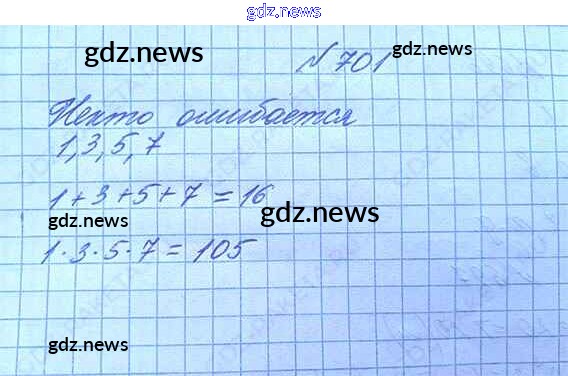 gdz.news
gdz.news
№ 701
gdz.news
Некто ошибается
1, 3, 5, 7
1 + 3 + 5 + 7 = 16
gdz.news
gdz.news
1 · 3 · 5 · 7 = 105
gdz.news